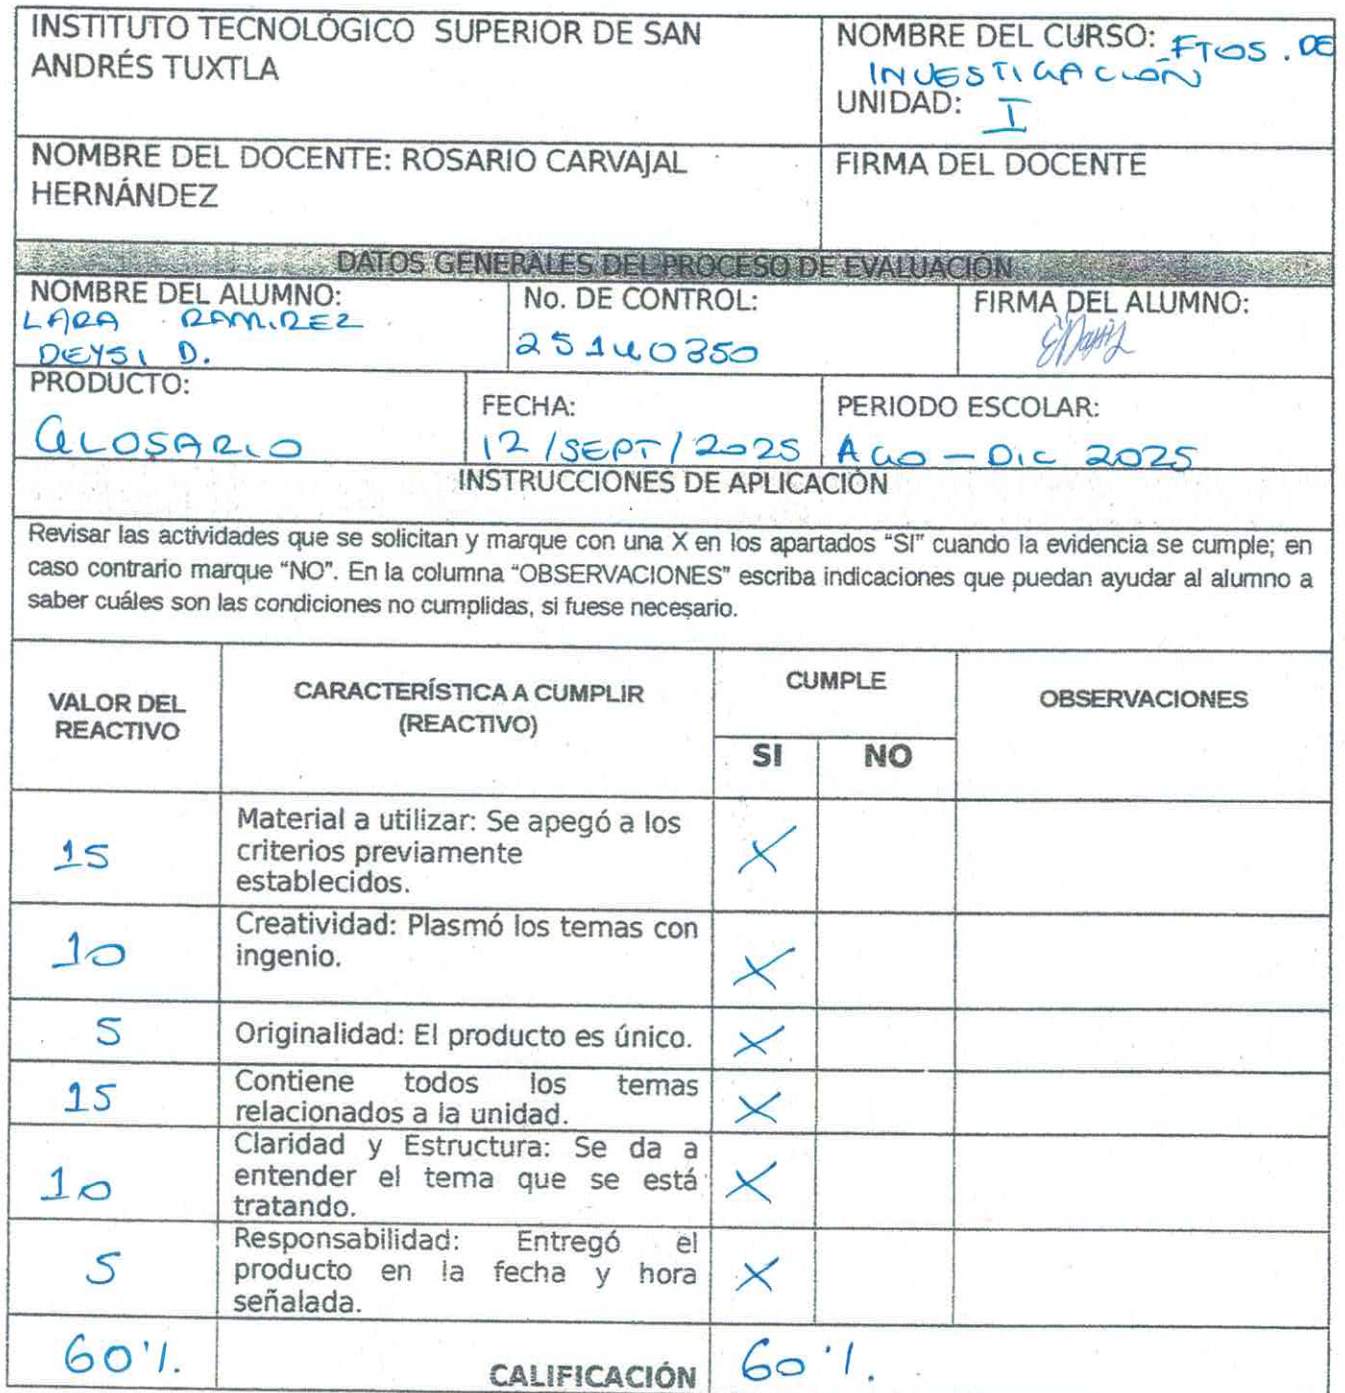 INSTITUTO TECNOLÓGICO SUPERIOR DE SAN
ANDRÉS TUXTLA
NOMBRE DEL CURSO: FTOS. DE
INVESTIGACIÓN
UNIDAD: I
NOMBRE DEL DOCENTE: ROSARIO CARVAJAL
HERNÁNDEZ
FIRMA DEL DOCENTE
DATOS GENERALES DEL PROCESO DE EVALUACIÓN
NOMBRE DEL ALUMNO:
LARA RAMIREZ
DEYSI D.
No. DE CONTROL:
251U0350
FIRMA DEL ALUMNO:
PRODUCTO:
GLOSARIO
FECHA:
12/SEPT/2025
PERIODO ESCOLAR:
AGO - DIC 2025
INSTRUCCIONES DE APLICACIÓN
Revisar las actividades que se solicitan y marque con una X en los apartados "SI" cuando la evidencia se cumple; en
caso contrario marque "NO". En la columna "OBSERVACIONES" escriba indicaciones que puedan ayudar al alumno a
saber cuáles son las condiciones no cumplidas, si fuese necesario.
VALOR DEL
REACTIVO
CARACTERÍSTICA A CUMPLIR
(REACTIVO)
CUMPLE
SI NO
OBSERVACIONES
15
Material a utilizar: Se apegó a los
criterios previamente
establecidos.
X
10
Creatividad: Plasmó los temas con
ingenio.
X
5
Originalidad: El producto es único.
X
15
Contiene todos los temas
relacionados a la unidad.
X
10
Claridad y Estructura: Se da a
entender el tema que se está
tratando.
X
5
Responsabilidad: Entregó el
producto en la fecha y hora
señalada.
X
60%.
CALIFICACIÓN
60%.